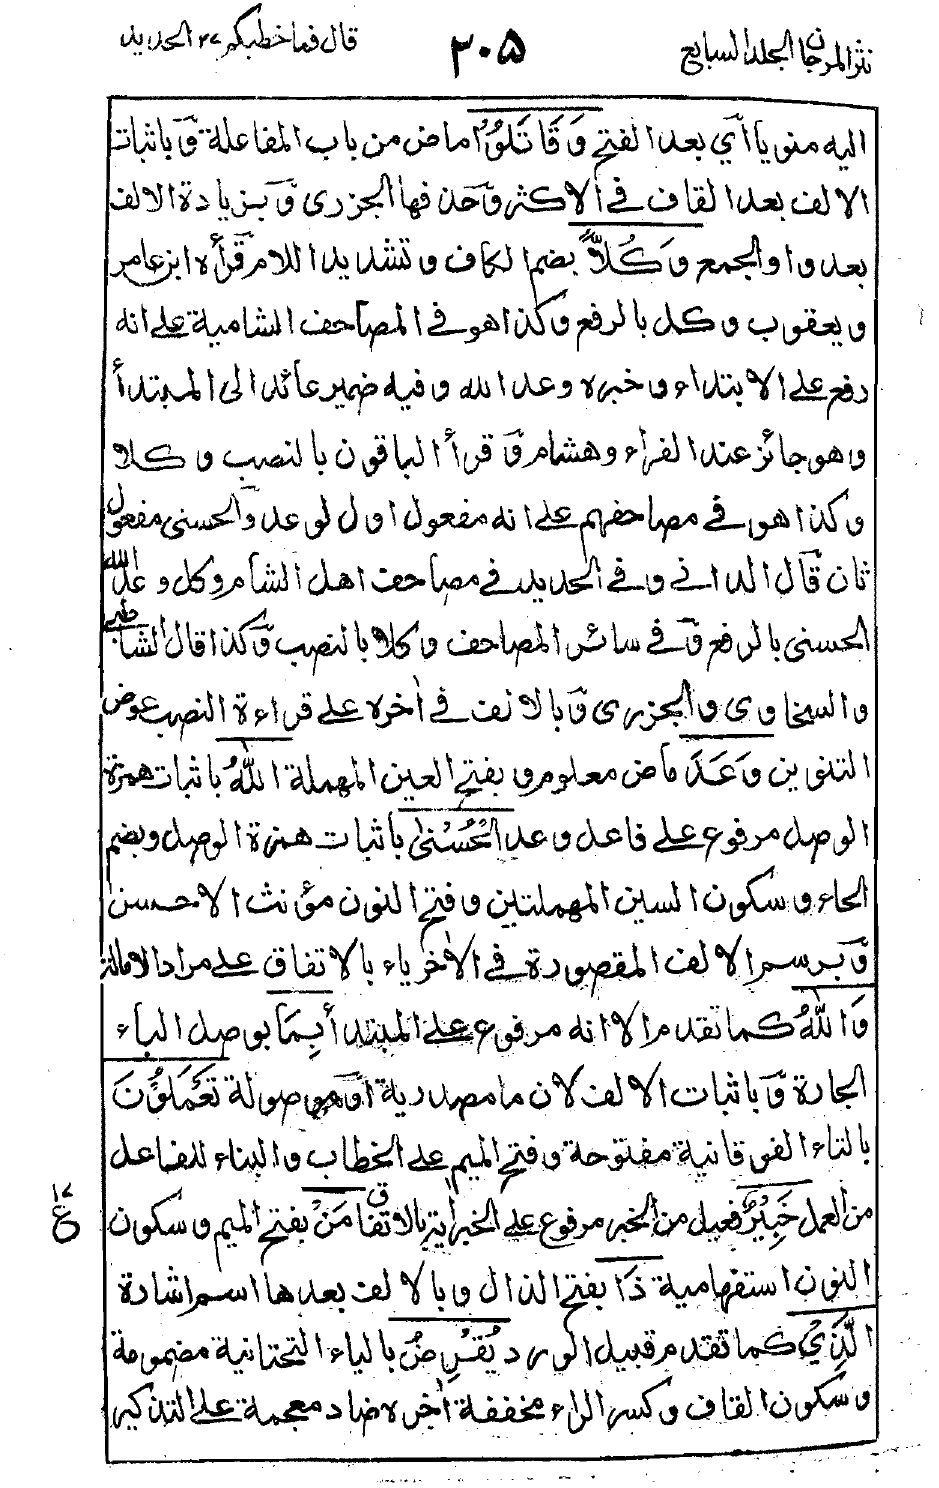 نثر المرجان الجلد السابع
٣٠٥
قال فما خطبكم ٢٧ الحديد
اليه منويا اي بعد الفتح وَقَاتَلُوْا ماض من باب المفاعلة وباثبات
الالف بعد القاف في الاكثر وحذفها الجزرى وبزيادة الالف
بعد واو الجمع وَكُلًّا بضم الكاف وتشديد اللام قرأه ابن عامر
ويعقوب وكل بالرفع وكذا هو في المصاحف الشامية على انه
رفع على الابتداء وخبره وعد الله وفيه ضمير عائد الى المبتدأ
وهو جائز عند الفراء وهشام وقرأ الباقون بالنصب وكلا
وكذا هو في مصاحفهم على انه مفعول اول لوعد والحسنى مفعول
ثان قال الدانى وفي الحديد في مصاحف اهل الشام وكل وعد الله
الحسنى بالرفع وفي سائر المصاحف وكلا بالنصب وكذا قال الشاطبي
والسخاوى والجزرى وبالالف في اخره على قراءة النصب عوض
التنوين وَعَدَ ماض معلوم وبفتح العين المهملة اللّٰهُ باثبات همزة
الوصل مرفوع على فاعل وعد الْحُسْنٰى باثبات همزة الوصل وبضم
الحاء وسكون السين المهملتين وفتح النون مؤنث الاحسن
وبرسم الالف المقصورة في الاخر ياء بالاتفاق على مراد الامالة
وَاللّٰهُ كما تقدم الا انه مرفوع على المبتدأ بِمَا بوصل الباء
الجارة وباثبات الالف لان ما مصدرية او موصولة تَعْمَلُوْنَ
بالتاء الفوقانية مفتوحة وفتح الميم على الخطاب والبناء للفاعل
من العمل خَبِيْرٌ فعيل من الخبر مرفوع على الخبراية بالاتفاق مَنْ بفتح الميم وسكون
النون استفهامية ذَا بفتح الذال وبالالف بعدها اسم اشارة
الَّذِيْ كما تقدم قبيل الورد يُقْرِضُ بالياء التحتانية مضمومة
وسكون القاف وكسر الراء مخففة اخره ضاد معجمة على التذكير
١٧
ع